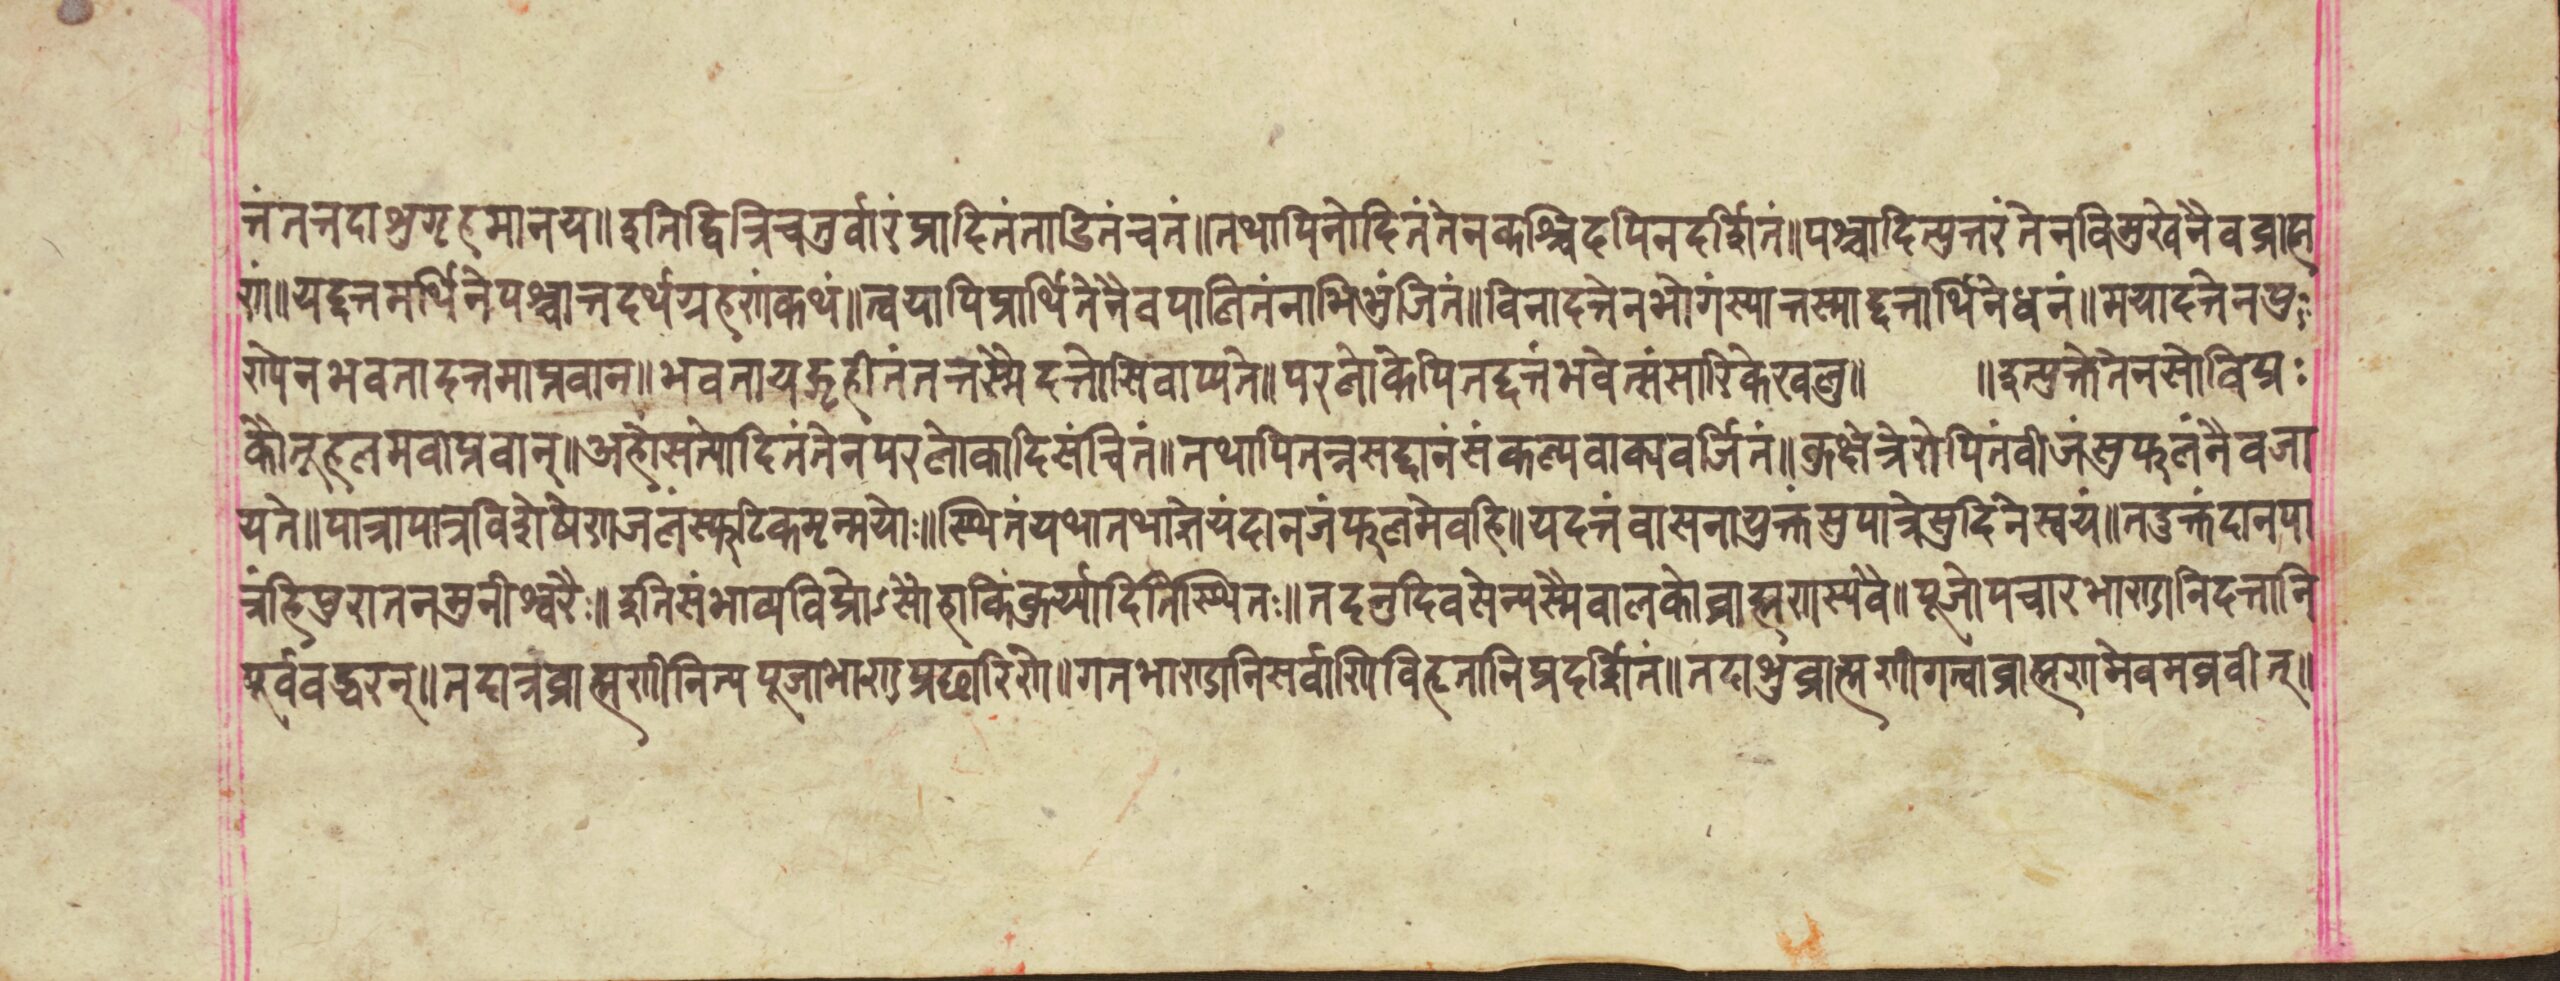 त्तं तत्तदाश्रुगृहमानय॥ इति द्वित्रिचतुर्वारं प्रादितं ताडितं च तं॥ तथापि नोदितं तेन कश्चिदपि न दर्शितं॥ पश्चादित्युत्तरं तेन विमुखेनैव ब्राह्म
णं॥ यद्दत्तमर्थिने पश्चात्तदर्थग्रहणं कथं॥ त्वयापि प्रार्थितेनैव पालितं नाभिभुंजितं॥ विना दत्तेन भोगं स्यात्तस्माद्दत्तार्थिने धनं॥ मया दत्तेन पु
ण्येन भवता दत्तमाप्नवान्॥ भवता यद्गृहीतं तत्तस्मै दत्तोसि वाप्यते॥ परलोकेपि तद्दत्तं भवेत्संसारिके खलु॥ ॥ इत्युक्ते तेन सो विप्रः
कौतूहलमवाप्नवान्॥ अहो सत्योदितं तेन परलोकादिसंचितं॥ तथापि तन्न सद्दानं संकल्पवाक्यवर्जितं॥ कुक्षेत्रे रोपितं वीजं सुफलं नैव जा
यते॥ पात्रापात्रविशेषेण जलं स्फटिकमृन्मयोः॥ स्थितं यथा तथा ज्ञेयं दानजं फलमेव हि॥ यदत्तं वासनायुक्तं सुपात्रे सुदिने स्वयं॥ तदुक्तं दानपा
त्रं हि पुरातनमुनीश्वरैः॥ इति संभाव्य विप्रोऽसौ हा किं कुर्यादिति स्थितः॥ तदनु दिवसेन्यस्मै वालको ब्राह्मणस्य वै॥ पूजोपचारभाण्डानि दत्तानि
पूर्ववद्धरन्॥ तदात्रं ब्राह्मणी नित्यपूजाभाण्डप्रछारिणे॥ गतभाण्डानि सर्वाणि विहृतानि प्रदर्शितं॥ तदाश्रु ब्राह्मणी गत्वा ब्राह्मणमेवमब्रवीत्॥